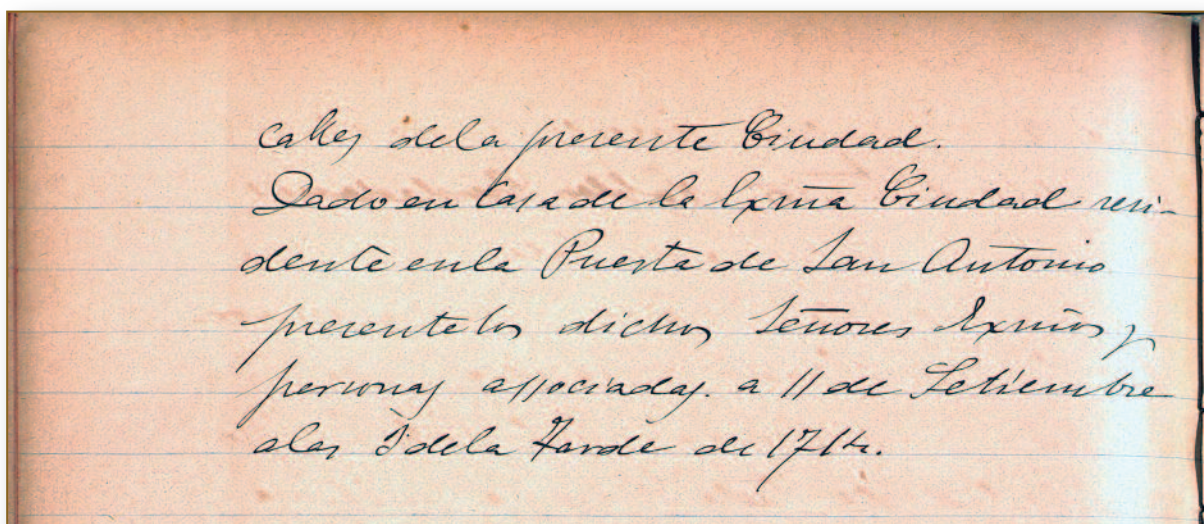 calles dela presente Ciudad.
Dado en Casa de la Exma Ciudad resi-
dente enla Puerta de San Antonio
presente los dichos Señores Exmos y
personas associadas. a 11 de Setiembre
alas 3 dela Tarde de 1714.